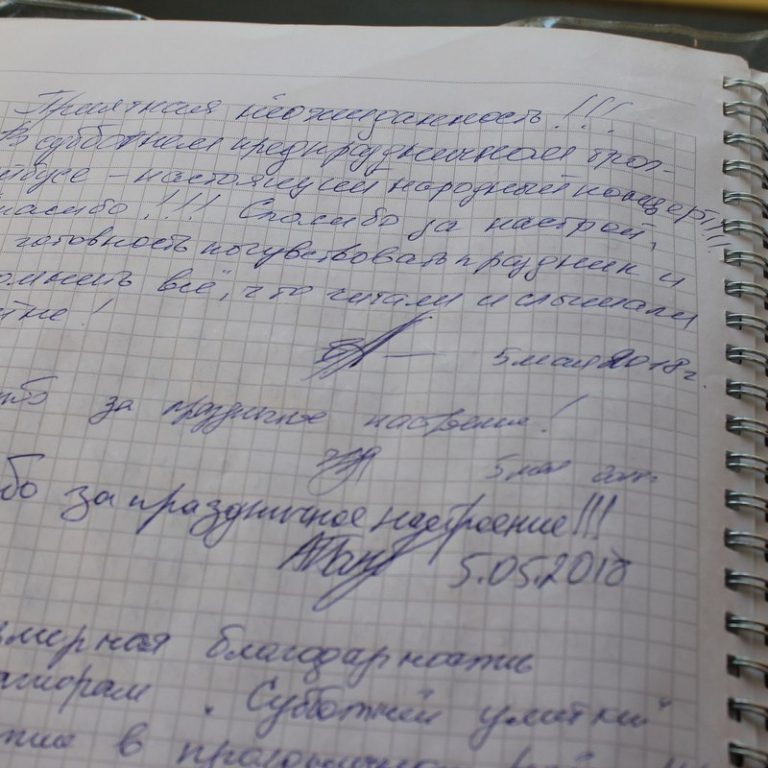 Приятная неожиданность!!!
В субботнем предпраздничном трол-
ейбусе – настоящий народный концерт!!!!
пасибо!!! Спасибо за настрой,
готовность почувствовать праздник и
омнить всё, что читали и слышали
йне!
5 мая 2018 г.
ибо за праздничное настроение!
5 мая
бо за праздничное настроение!!!
5.05.2018
мерная благодарность
аторам "Субботней улитки"
в